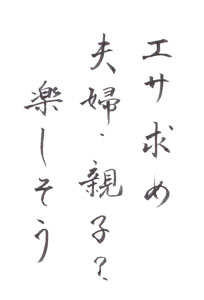 エサ求め
夫婦・親子?
楽しそう